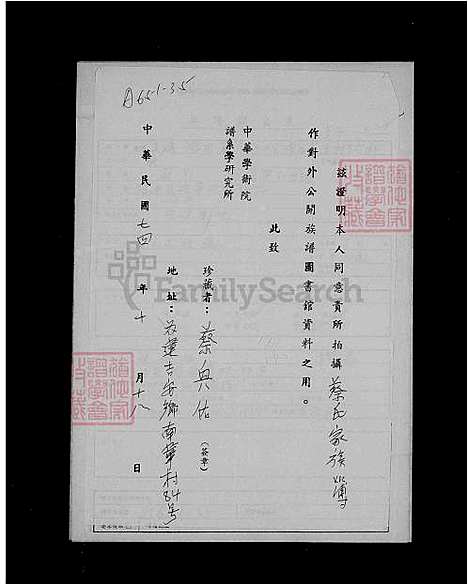 A65-1-35
茲證明本人同意貴所拍攝蔡氏家族簿
作對外公開族譜圖書館資料之用。
此致
中華學術院
譜系學研究所
珍藏者：蔡興佑(簽章)
地址：花蓮吉安鄉南華村84号
中華民國七四年十月十八日
FamilySearch